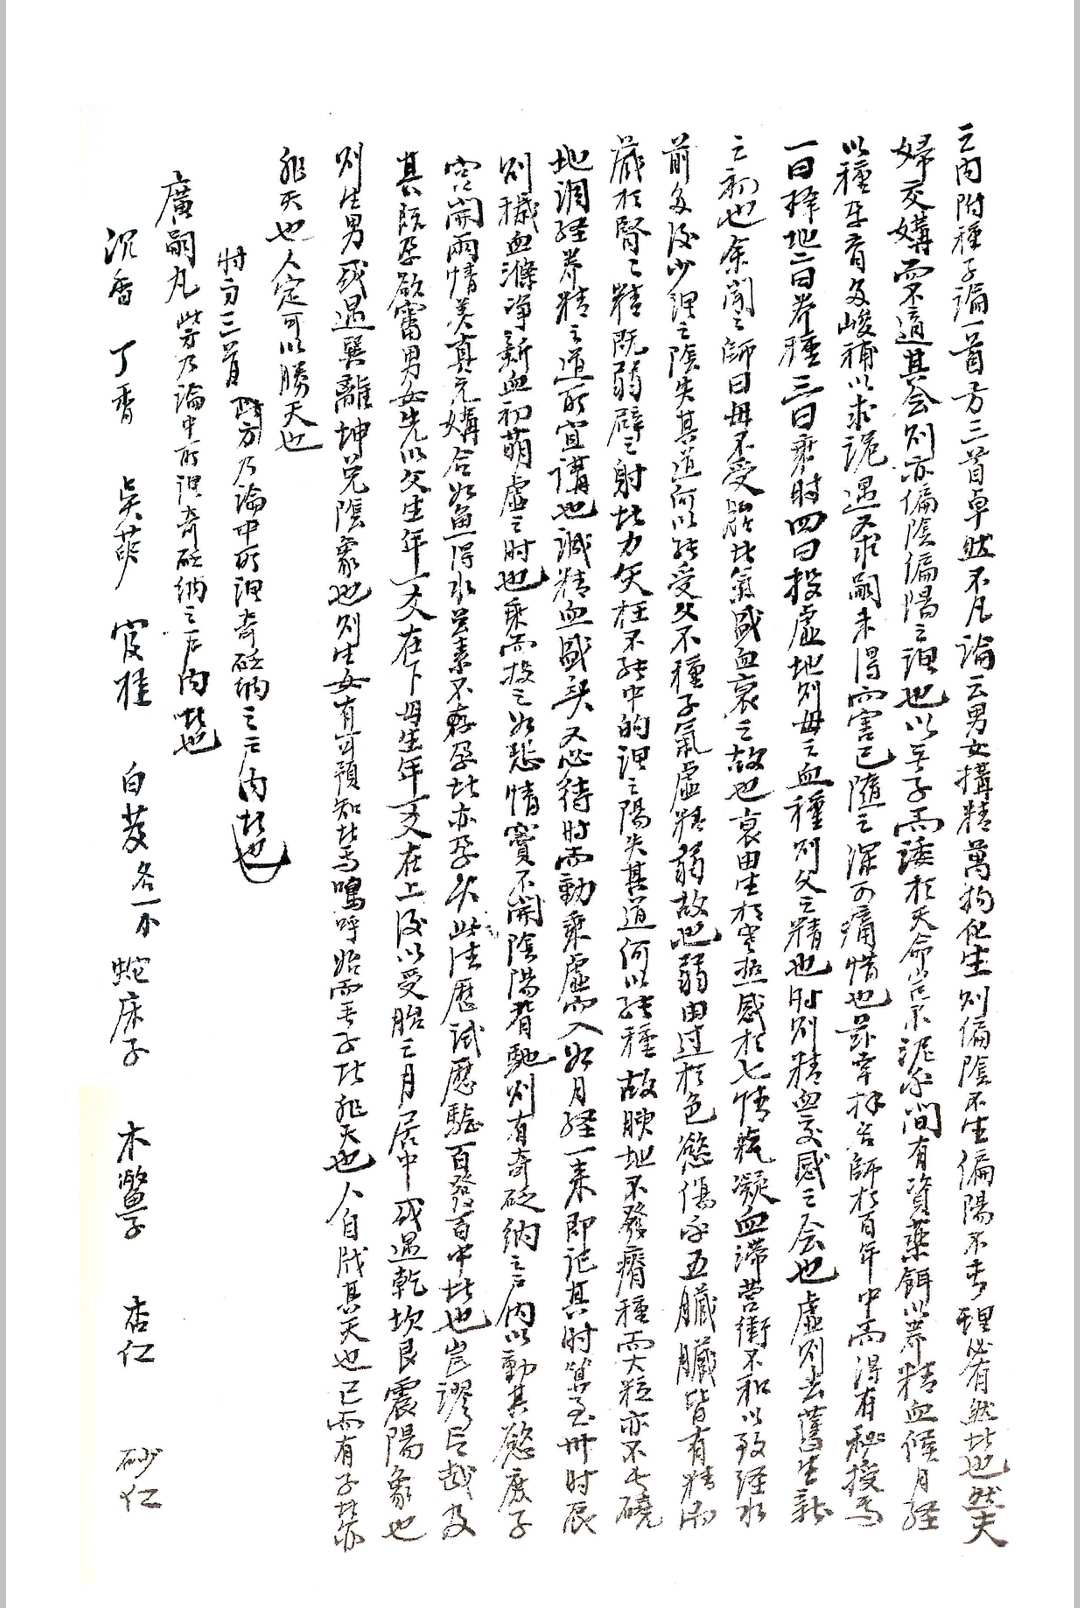 之內附種子論一首方三首卓然不凡論云男女搆精萬物化生則偏陰不生偏陽不成理必有然者也然夫
婦交媾而不適其会則亦偏陰偏陽之理也以無子而諉於天命豈不泥乎間有資藥餌以養精血候月經
以種孕育多峻補以求詭遇又求嗣未得而害已隨之深可痛惜也茲幸拜名師於百年中而得有秘授焉
一曰擇地二曰养種三曰乘时四曰投虛地則母之血種則父之精也时則精血交感之会也虛則去舊生新
之初也余聞之師曰母不受胎者氣盛血衰之故也衰由生於寒熱感於七情氣凝血滯营衛不和以致經水
前多後少謂之陰失其道何以能受父不種子氣虛精弱故也弱由过於色慾傷乎五臟臟皆有精而
藏於腎腎精既弱辟之射者力矢枉不能中的謂之陽失其道何以能種故腴地不發瘠種而大粒亦不長磽
地調經养精之道所宜講也誠精血盛矣又必待时而動乘虛而入如月經一来即記其时算至卅时辰
則穢血滌淨新血初萌虛之时也乘而投之如慾情竇不開陰陽背馳則有奇砭納之户内以動其慾庶子
宮開兩情美真元媾合如魚得水甚素不孕者亦孕矣此法歷試歷驗百發百中者也豈謬言哉及
其既孕欲審男女先以父生年一爻在下母生年一爻在上後以受胎之月居中或遇乾坎艮震陽象也
則生男或遇巽離坤兌陰象也則生女有可預知者焉嗚呼始而無子者非天也人自戕其天也已而有子者亦
非天也人定可以勝天也
附方三首 附方乃論中所謂奇砭納之户内者也
廣嗣丸 此方乃論中所謂奇砭納之户内者也
沉香 丁香 吳萸 官桂 白芨各一小 蛇床子 木鱉子 杏仁 砂仁